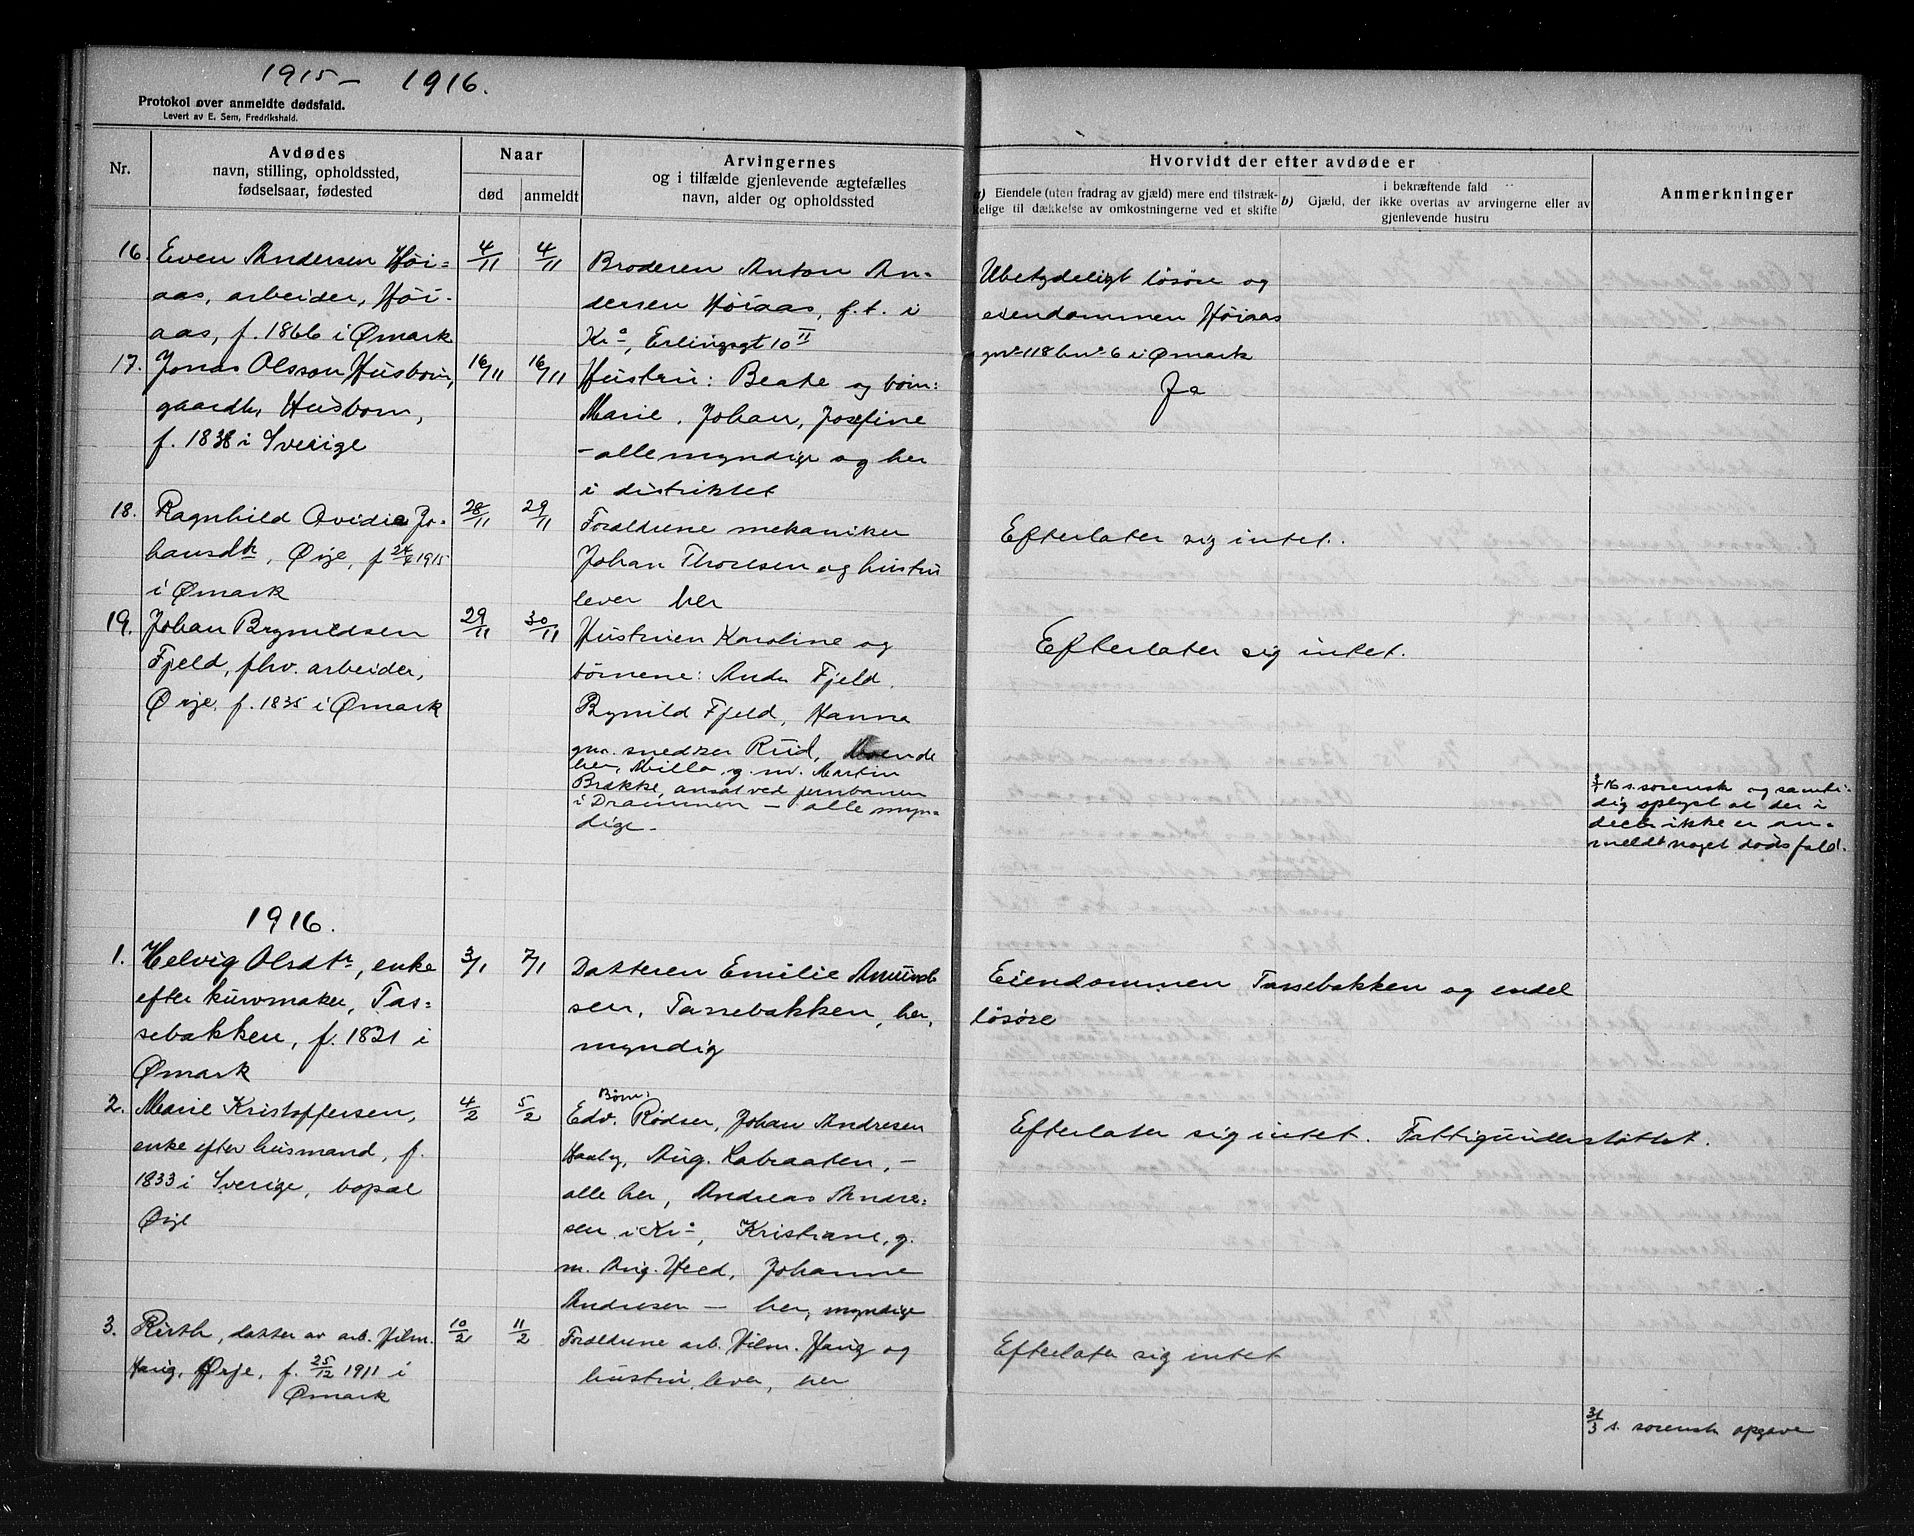 1915 – 1916.
Protokol over anmeldte dødsfald.
Levert av E. Sem, Fredrikshald.
Nr.
Avdødes
navn, stilling, opholdssted,
fødselsaar, fødested
Naar
død
anmeldt
Arvingernes
og i tilfælde gjenlevende ægtefælles
navn, alder og opholdssted
Hvorvidt der efter avdøde er
a) Eiendele (uten fradrag av gjæld) mere end tilstræk-
kelige til dækkelse av omkostningerne ved et skifte
i bekræftende fald
b) Gjæld, der ikke overtas av arvingerne eller av
gjenlevende hustru
Anmerkninger
16. Even Andersen Høi=
aas, arbeider, Høi-
aas, f. 1866 i Ømark
4/11
4/11
Broderen Anton An-
dersen Høiaas, f.t. i
Kr.a, Erlingsgt 10 II
Ubetydeligt løsøre og
eiendommen Høiaas
gno 118 bno 6 i Ømark
17. Jonas Olsson Husborn,
gaardbr, Husborn,
f. 1838 i Sverige
16/11
16/11
Hustru: Beate og børn:
Marie, Johan, Josefine
– alle myndige og her
i distriktet
Ja
18. Ragnhild Ovidia Jo-
hansdtr, Ørje, f 24/6 1915
i Ømark
28/11
29/11
Forældrene mekaniker
Johan Thorsen og hustru
lever her
Efterlater sig intet.
19. Johan Brynildsen
Fjeld, fhv. arbeider,
Ørje, f. 1835 i Ømark
29/11
30/11
Hustruen Karoline og
børnene: Anders Fjeld,
Brynild Fjeld, Hanna
gm. snedker Rud,
her, Milla g. m. Martin
Brække, ansat ved jernbanen
i Drammen – alle myn-
dige.
Efterlater sig intet.
3/1 16 s. sorensk og samti-
dig oplyst at der i
decbr ikke er an-
meldt noget dødsfald.
1916.
1. Helvig Olsdtr, enke
efter kurvmaker, Tas-
sebakken, f. 1821 i
Ømark
3/1
7/1
Datteren Emilie Amund-
sen, Tassebakken, her,
myndig
Eiendommen Tassebakken og endel
løsøre
2. Marie Kristoffersen,
enke efter husmand, f.
1833 i Sverige, bopæl
Ørje
4/2
5/2
Børn:
Edv. Rødser, Johan Andresen
Aug. Labraaten, –
alle her, Andreas Andre-
sen i Kr.a, Kristiane, g.
m. Aug. Hed, Johanne
Andresen – her, myndige
Efterlater sig intet. Fattigunderstøttet.
3. Ruth, datter av arb. Hilm.
Haug, Ørje, f. 25/12 1911 i
Ømark
10/2
11/2
Forældrene arb. Hilm. Haug og
hustru, lever, her
Efterlater sig intet
31/3 s. sorensk opgave